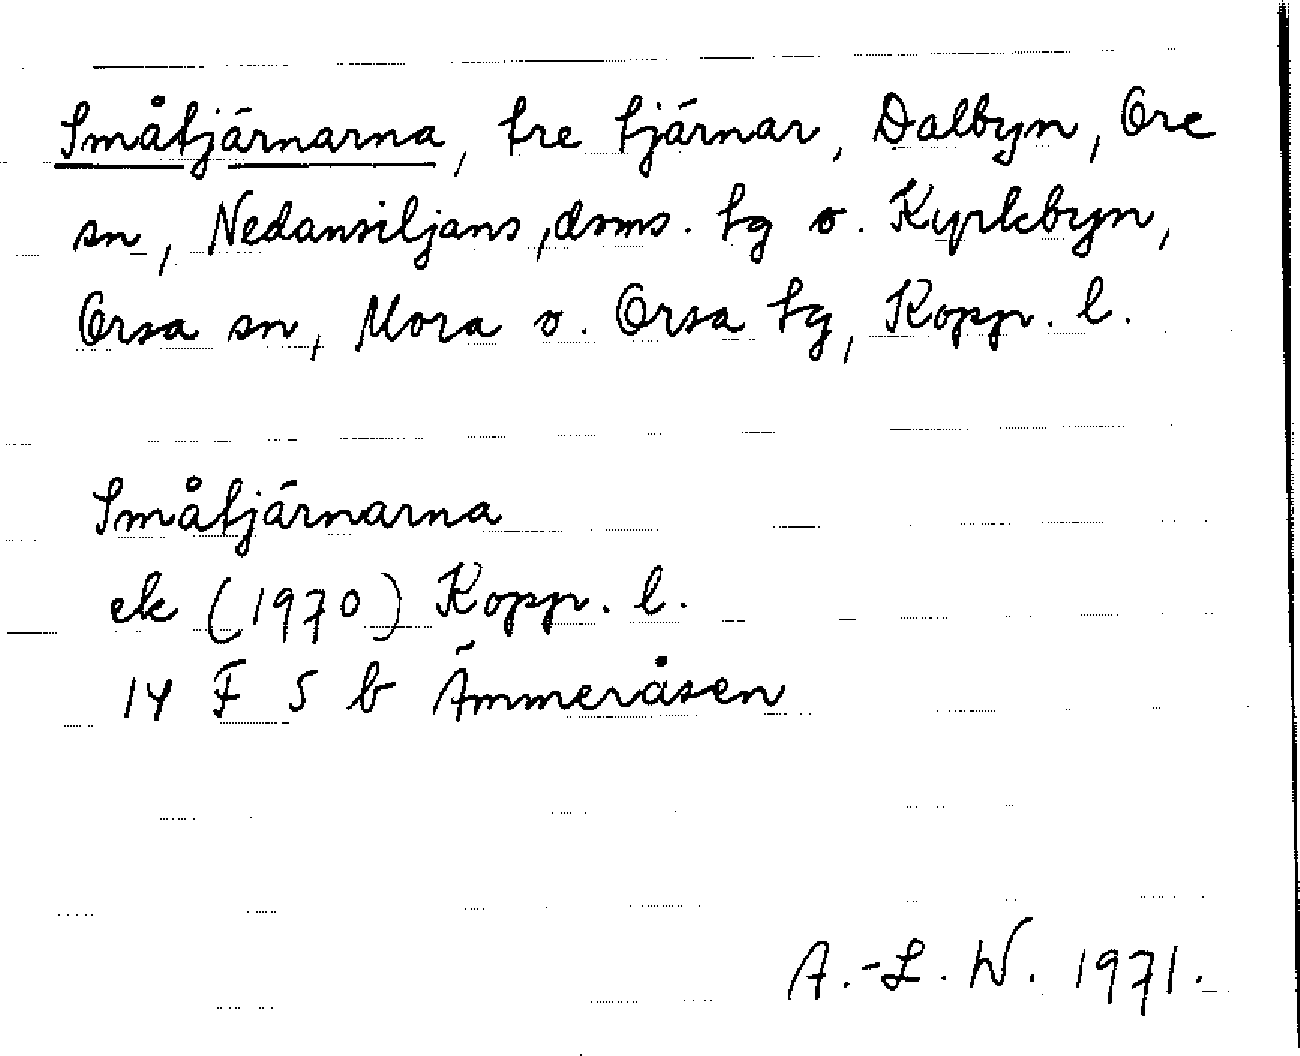 Småtjärnarna, tre tjärnar, Dalbyn, Ore
sn, Nedansiljans, dsms. tg o. Kyrkbyn,
Orsa sn, Mora o. Orsa tg, Kopp. l.
Småtjärnarna
ek (1970) Kopp. l.
14 F 5 b Ämmeråsen
A.-L. W. 1971.